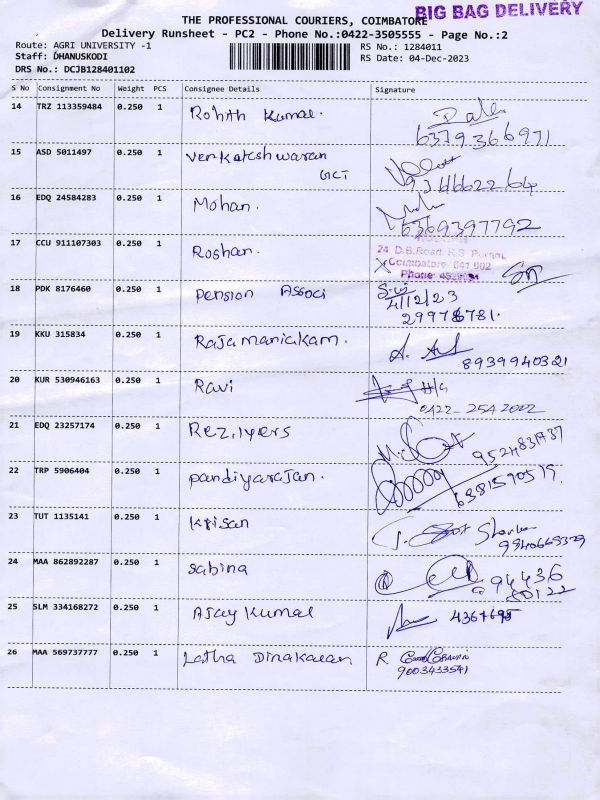 THE PROFESSIONAL COURIERS, COIMBATORE
BIG BAG DELIVERY
Delivery Runsheet - PC2 - Phone No.:0422-3505555 - Page No.:2
Route: AGRI UNIVERSITY -1
RS No.: 1284011
Staff: DHANUSKODI
RS Date: 04-Dec-2023
DRS No.: DCJB128401102
S No Consignment No Weight PCS Consignee Details Signature
14 TRZ 113359484 0.250 1 Rohith Kumar.
6379366971
15 ASD 5011497 0.250 1 Venkateshwaran
GCT
16 EDQ 24584283 0.250 1 Mohan.
6369397792
17 CCU 911107303 0.250 1 Roshan.
24 D.B.Road R.S Puram,
Coimbatore 641 002
Phone:
18 PDK 8176460 0.250 1 Pension Associ
4/12/23
29978781.
19 KKU 315834 0.250 1 Rajamanickam.
8939940321
20 KUR 530946163 0.250 1 Ravi
0422-2542002
21 EDQ 23257174 0.250 1 Rez.iyers
22 TRP 5906404 0.250 1 pandiyarajan.
6381590519.
23 TUT 1135141 0.250 1 Krisan
24 MAA 862892287 0.250 1 Sabina
94436
25 SLM 334168272 0.250 1 Ajay Kumar
4364695
26 MAA 569737777 0.250 1 Latha Dinakaran R.
9003433541